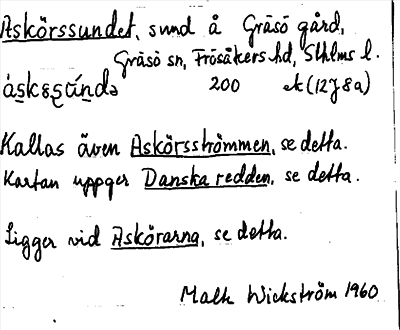 Askörssundet, sund å Gräsö gård,
Gräsö sn, Frösåkers hd, Sthlms l.
200 ek (12J8a)
Kallas även Askörsströmmen, se detta.
Kartan uppger Danska redden, se detta.
Ligger vid Askörarna, se detta.
Wickström 1960